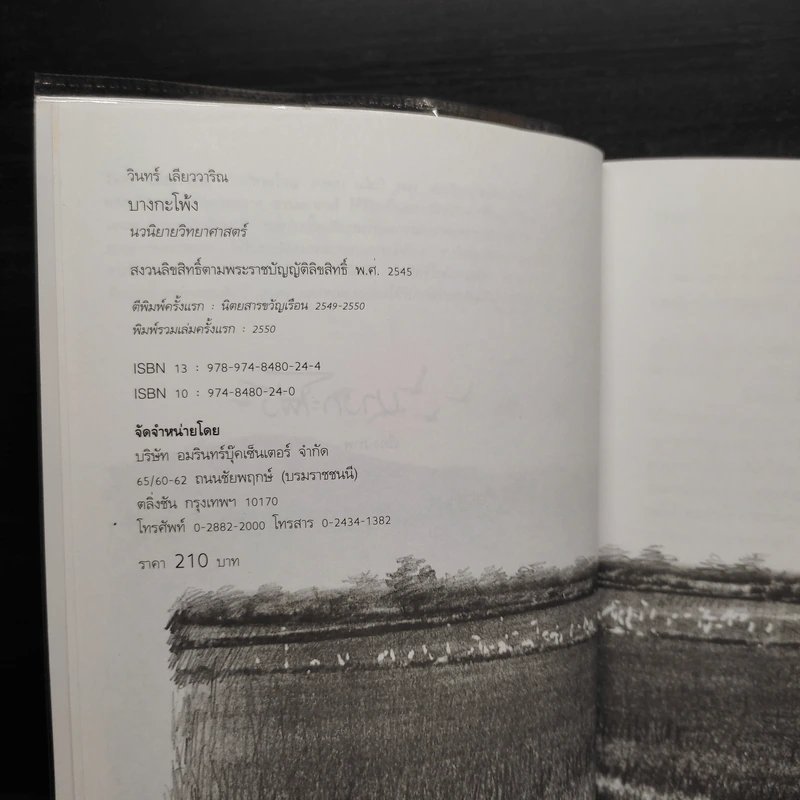 วินทร์ เลียววาริณ
บางกะโพ้ง
นวนิยายวิทยาศาสตร์
สงวนลิขสิทธิ์ตามพระราชบัญญัติลิขสิทธิ์ พ.ศ. 2545
ตีพิมพ์ครั้งแรก : นิตยสารขวัญเรือน 2549-2550
พิมพ์รวมเล่มครั้งแรก : 2550
ISBN 13 : 978-974-8480-24-4
ISBN 10 : 974-8480-24-0
จัดจำหน่ายโดย
บริษัท อมรินทร์บุ๊คเซ็นเตอร์ จำกัด
65/60-62 ถนนชัยพฤกษ์ (บรมราชชนนี)
ตลิ่งชัน กรุงเทพฯ 10170
โทรศัพท์ 0-2882-2000 โทรสาร 0-2434-1382
ราคา 210 บาท